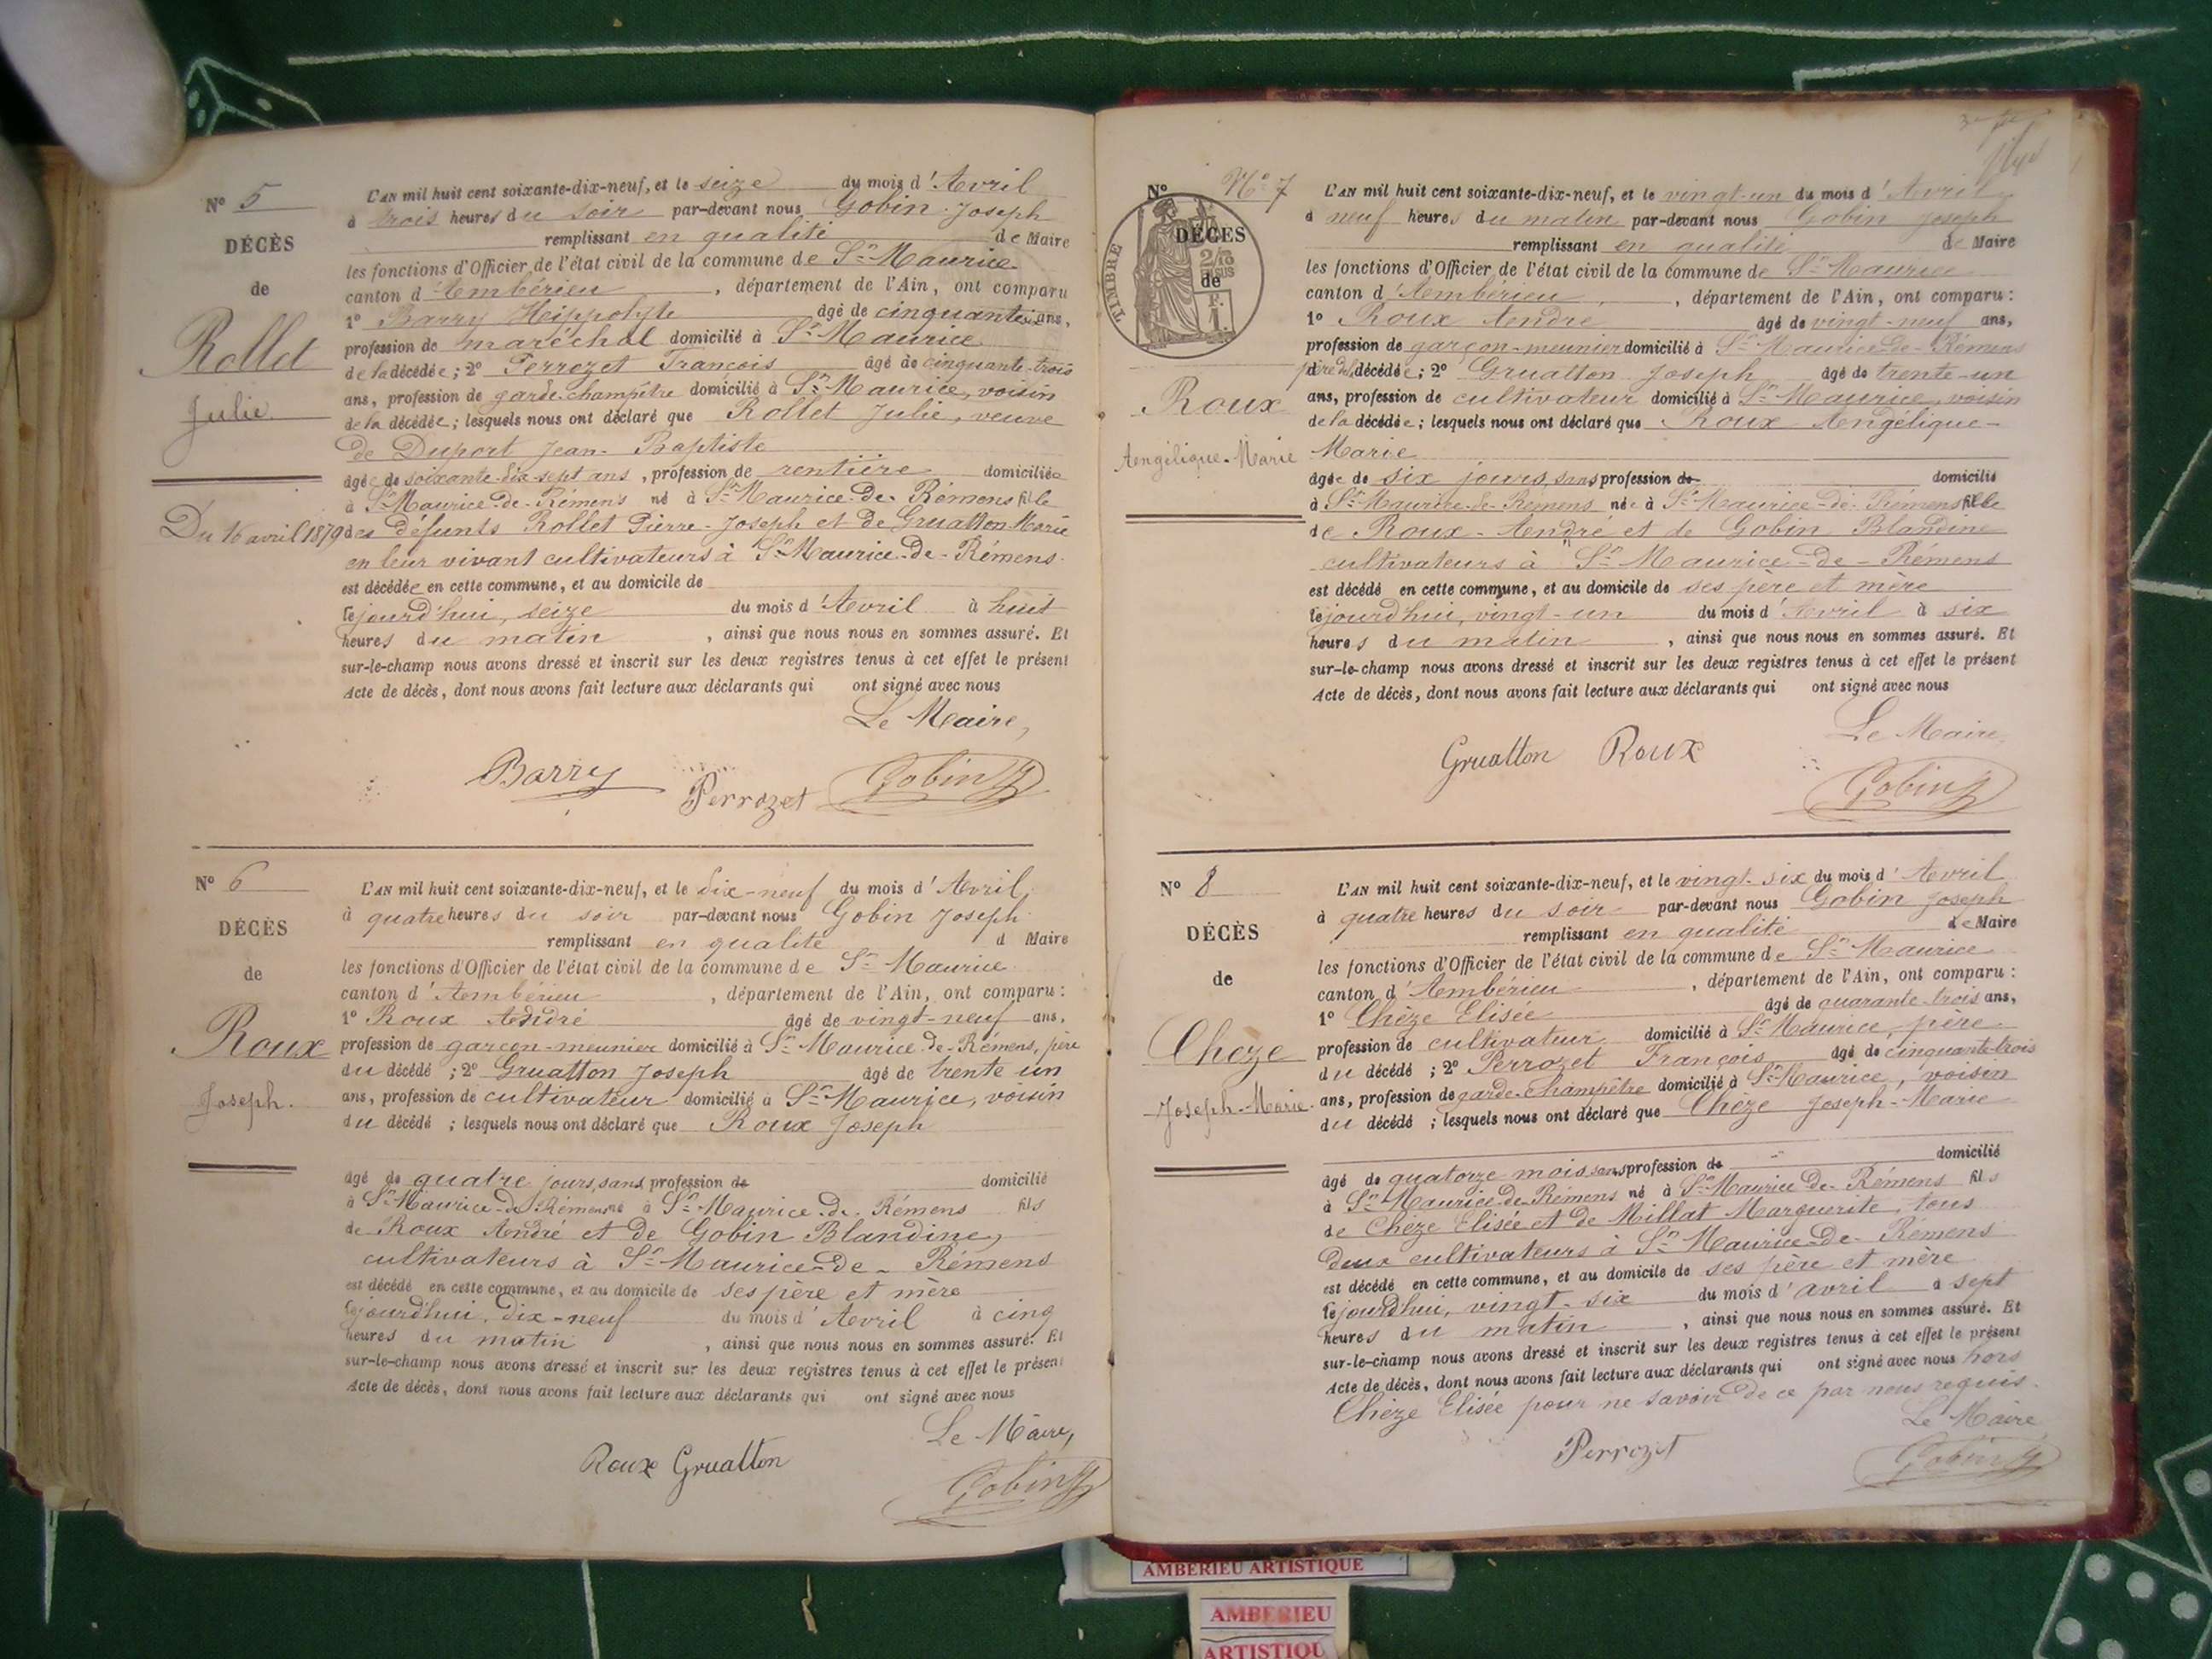 N° 5
DÉCÈS
de
Rollet
Julie
Du 16 avril 1879
L'AN mil huit cent soixante-dix-neuf, et le seize du mois d'Avril
à trois heures du soir par-devant nous Gobin Joseph
remplissant en qualité de Maire
les fonctions d'Officier de l'état civil de la commune de St Maurice
canton d'Ambérieu, département de l'Ain, ont comparu
1° Barry Hippolyte âgé de cinquante ans,
profession de maréchal domicilié à St Maurice
de la décédée; 2° Perrozet François âgé de cinquante-trois
ans, profession de garde-champêtre domicilié à St Maurice, voisin
de la décédée; lesquels nous ont déclaré que Rollet Julie, veuve
de Duport Jean-Baptiste
âgée de soixante-dix-sept ans, profession de rentière domiciliée
à St Maurice-de-Rémens né à St Maurice-de-Rémens fille
des défunts Rollet Pierre-Joseph et de Gruatton Marie
en leur vivant cultivateurs à St Maurice-de-Rémens
est décédée en cette commune, et au domicile de
cejourd'hui, seize du mois d'Avril à huit
heures du matin, ainsi que nous nous en sommes assuré. Et
sur-le-champ nous avons dressé et inscrit sur les deux registres tenus à cet effet le présent
Acte de décès, dont nous avons fait lecture aux déclarants qui ont signé avec nous
Le Maire,
Barry Perrozet Gobin
N° 6
DÉCÈS
de
Roux
Joseph.
L'AN mil huit cent soixante-dix-neuf, et le dix-neuf du mois d'Avril
à quatre heures du soir par-devant nous Gobin Joseph
remplissant en qualité d Maire
les fonctions d'Officier de l'état civil de la commune de St Maurice
canton d'Ambérieu, département de l'Ain, ont comparu :
1° Roux André âgé de vingt-neuf ans,
profession de garçon-meunier domicilié à St Maurice-de-Rémens, père
du décédé ; 2° Gruatton Joseph âgé de trente un
ans, profession de cultivateur domicilié à St Maurice, voisin
du décédé ; lesquels nous ont déclaré que Roux Joseph
âgé de quatre jours, sans profession de domicilié
à St Maurice-de-Rémens né à St Maurice-de-Rémens fils
de Roux André et de Gobin Blandine,
cultivateurs à St Maurice-de-Rémens
est décédé en cette commune, et au domicile de ses père et mère
cejourd'hui, dix-neuf du mois d'Avril à cinq
heures du matin, ainsi que nous nous en sommes assuré. Et
sur-le-champ nous avons dressé et inscrit sur les deux registres tenus à cet effet le présent
Acte de décès, dont nous avons fait lecture aux déclarants qui ont signé avec nous
Le Maire,
Roux Gruatton Gobin
N° N° 7
TIMBRE
DÉCÈS
de
Roux
Angélique-Marie
L'AN mil huit cent soixante-dix-neuf, et le vingt-un du mois d'Avril
à neuf heures du matin par-devant nous Gobin Joseph
remplissant en qualité de Maire
les fonctions d'Officier de l'état civil de la commune de St Maurice
canton d'Ambérieu, département de l'Ain, ont comparu :
1° Roux André âgé de vingt-neuf ans,
profession de garçon-meunier domicilié à St Maurice-de-Rémens
père de la décédée; 2° Gruatton Joseph âgé de trente-un
ans, profession de cultivateur domicilié à St Maurice, voisin
de la décédée; lesquels nous ont déclaré que Roux Angélique-
Marie
âgée de six jours, sans profession de domicilié
à St Maurice-de-Rémens née à St Maurice-de-Rémens fille
de Roux André et de Gobin Blandine
cultivateurs à St Maurice-de-Rémens
est décédé en cette commune, et au domicile de ses père et mère
cejourd'hui, vingt-un du mois d'Avril à six
heures du matin, ainsi que nous nous en sommes assuré. Et
sur-le-champ nous avons dressé et inscrit sur les deux registres tenus à cet effet le présent
Acte de décès, dont nous avons fait lecture aux déclarants qui ont signé avec nous
Le Maire,
Gruatton Roux Gobin
N° 8
DÉCÈS
de
Chèze
Joseph-Marie
L'AN mil huit cent soixante-dix-neuf, et le vingt-six du mois d'Avril
à quatre heures du soir par-devant nous Gobin Joseph
remplissant en qualité de Maire
les fonctions d'Officier de l'état civil de la commune de St Maurice
canton d'Ambérieu, département de l'Ain, ont comparu :
1° Chèze Elisée âgé de quarante-trois ans,
profession de cultivateur domicilié à St Maurice, père
du décédé ; 2° Perrozet François âgé de cinquante-trois
ans, profession de garde-champêtre domicilié à St Maurice, voisin
du décédé ; lesquels nous ont déclaré que Chèze Joseph-Marie
âgé de quatorze mois sans profession de domicilié
à St Maurice-de-Rémens né à St Maurice-de-Rémens fils
de Chèze Elisée et de Millat Marguerite, tous
deux cultivateurs à St Maurice-de-Rémens
est décédé en cette commune, et au domicile de ses père et mère
cejourd'hui, vingt-six du mois d'avril à sept
heures du matin, ainsi que nous nous en sommes assuré. Et
sur-le-champ nous avons dressé et inscrit sur les deux registres tenus à cet effet le présent
Acte de décès, dont nous avons fait lecture aux déclarants qui ont signé avec nous hors
Chèze Elisée pour ne savoir de ce par nous requis.
Le Maire
Perrozet Gobin
AMBERIEU ARTISTIQUE
AMBERIEU
ARTISTIQU